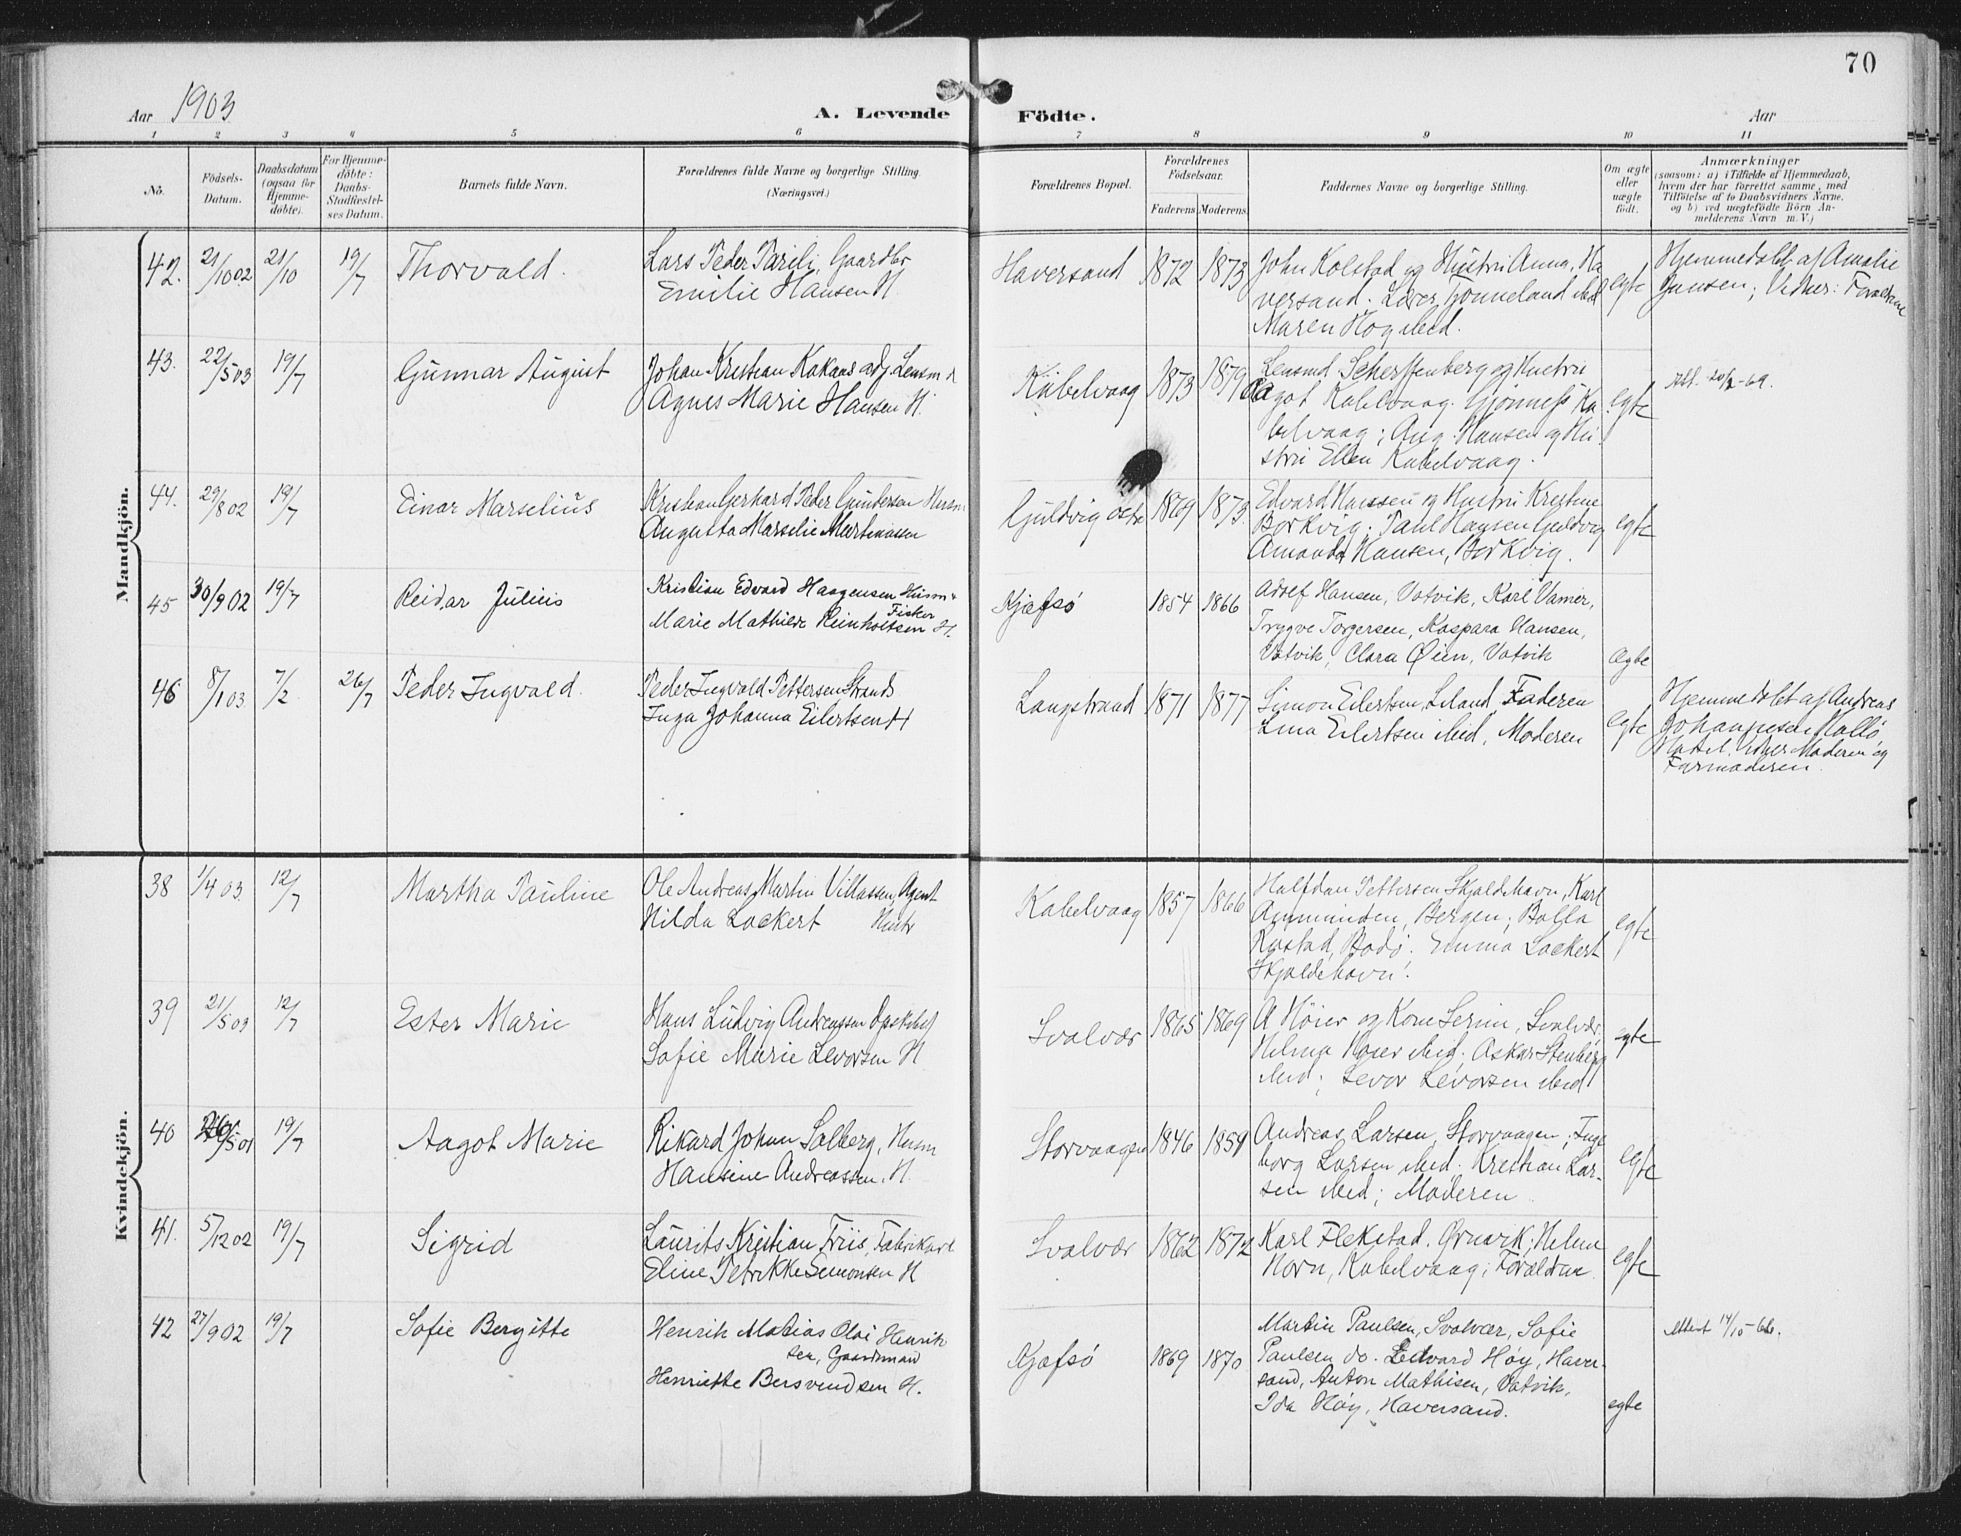 70
Aar 1903
A. Levende Födte.
Aar
1 2 3 4 5 6 7 8 9 10 11
No.
Födsels-
Datum.
Daabsdatum
(ogsaa for
Hjemme-
döbte).
For Hjemme-
döbte:
Daabs-
Stadfæstel-
ses Datum.
Barnets fulde Navn.
Forældrenes fulde Navne og borgerlige Stilling.
(Næringsvei.)
Forældrenes Bopæl.
Forældrenes
Födselsaar.
Faderens Moderens
Faddernes Navne og borgerlige Stilling.
Om ægte
eller
uægte
födt.
Anmærkninger
(saasom: a) i Tilfælde af Hjemmedaab,
hvem der har forrettet samme, med
Tilföielse af to Daabsvidners Navne,
og b) ved uægtefödte Börn An-
melderens Navn m. V.)
Mandkjön.
42. 21/10 02 21/10 19/7 Thorvald.
Lars Peder Parili, Gaardbr
Emilie Hansen H.
Haversand 1872 1873
John Kolstad og Hustru Anna, Ha
versand. Lever Tjønneland ibid
Maren Høg ibid.
egte
Hjemmedøbt af Amalie
Jensen; Vidner: Forældrene
43. 22/5 03 19/7 Gunnar August
Johan Kristian Kakaas adj. Lensm
Agnes Marie Hansen H.
Kabelvaag 1873 1879
Lensmd Scherffenberg og Hustru
Aagot Kabelvaag. Gjønness Ka
belvaag; Aug. Hansen og Hu
stru Ellen Kabelvaag.
egte
Att. 20/2-69.
44. 29/8 02 19/7 Einar Marselius
Kristian Gerhard Peder Gundersen Husm
Augusta Marselie Martinussen
Guldvig østre 1869 1873.
Edvard Hanssen og Hustru Kristine
Borkvig. Paul Hansen Guldvig
Amanda Hansen, Borkvig.
egte
45 30/9 02 19/7 Reidar Julius
Kristian Edvard Haagensen Husm
Fisker
Marie Mathilde Reinholtsen H.
Kjæfsö 1854 1866
Adolf Hansen, Vatvik, Karl Vamer,
Trygve Torgersen, Kaspara Hansen,
Vatvik, Clara Øien, Vatvik
egte
46 8/1 03 7/2 26/7 Peder Ingvald.
Peder Ingvald Pettersen Strands
Inga Johanna Eilertsen H
Langstrand 1871 1877
Simon Eilertsen, Leland, Faderen
Lina Eilertsen ibid, Moderen
egte
Hjemmedøbt af Andreas
Johannesen Mollø
Vidner Moderen og
Farmoderen.
Kvindekjön.
38 1/4 03 12/7 Martha Pauline
Ole Andreas Martin Villassen, Agent
Hilda Lockert Hustr
Kabelvaag 1857 1866
Halfdan Pettersen Skjoldehavn, Karl
Amminden, Bergen; Bolla
Røstad, Bodø. Emma Lockert
Skjoldehavn.
egte
39 21/5 03 12/7 Ester Marie
Hans Ludvig Andreassen
Sofie Marie Levorsen H
Svolvær 1865 1869
A Høier og Kone Serine, Svolvær;
Helma Høier ibid; Askar Stenberg
ibid; Levor Levorsen ibid
egte
40 26/5 01 19/7 Aagot Marie
Rikard Johan Solberg, Husm
Hansine Andreassen. H.
Storvaagen 1846 1859
Andreas Larsen, Storvaagen; Inge
borg Larsen ibid. Kristian Lar-
sen ibid; Moderen
egte
41. 5/12 02 19/7 Sigrid
Laurits Kristian Friis, Fabrikarb.
Eline Petrikke Simonsen H
Svolvær 1862 1872
Karl Flekstad. Ørnvik; Helma
Horn, Kabelvaag; Forældrne
egte
42 27/9 02 19/7 Sofie Bergitte
Henrik Matias Olai Henrik
sen, Gaardmand
Henriette Bersvendsen H.
Kjæfsö 1869 1870
Martin Paulsen, Svolvær, Sofie
Paulsen do. Edvard Høy, Haver-
sand, Anton Mathisen, Vatvik,
Ida Høy, Haversand.
egte
Attest 14/10-66.